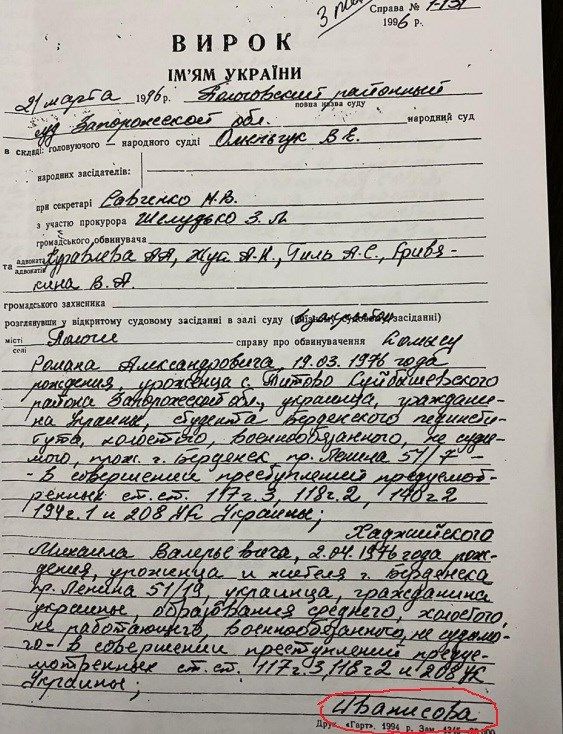 Справа № 1-131
1996 р.
ВИРОК
ІМ'ЯМ УКРАЇНИ
21 марта 1996 р. Пологовский районный
повна назва суду
суд Запорожской обл. народний суд
в складі: головуючого - народного судді Омельчук В.Е.
народних засідателів:
при секретарі Савченко Н.В.
з участю прокурора Шелудько З.Л.
громадського обвинувача
та адвоката Журавлева А.А, Жук А.Н., Гиль А.С., Гривя-
адвокатів
кина В.А.
громадського захисника
розглянувши у відкритому судовому засіданні в залі суду
місті Пологи справу про обвинувачення
селі
Романа Александровича, 19.03.1976 года
рождения, уроженца с. Титово Куйбышевского
района Запорожской обл., украинца, граждани-
на Украины, студента Бердянского пединсти-
тута, холостого, военнообязанного, не суди-
мого, прож. г. Бердянск пр. Ленина 51/7 -
- в совершении преступлений предусмот-
ренных ст.ст. 117 ч.3, 118 ч.2, 140 ч.2
194 ч.1 и 208 УК Украины;
Хаджийского
Михаила Валерьевича, 2.04.1976 года рож-
дения, уроженца и жителя г. Бердянска
пр. Ленина 51/19, украинца, гражданина
украины, образования среднего, холостого,
не работающего, военнообязанного, не судимо-
го - в совершении преступлений преду-
мотренных ст.ст. 117 ч.3, 118 ч2 и 208 УК
Украины;
Иванисова
Друк. «Гарт». 1994 р. Зам.